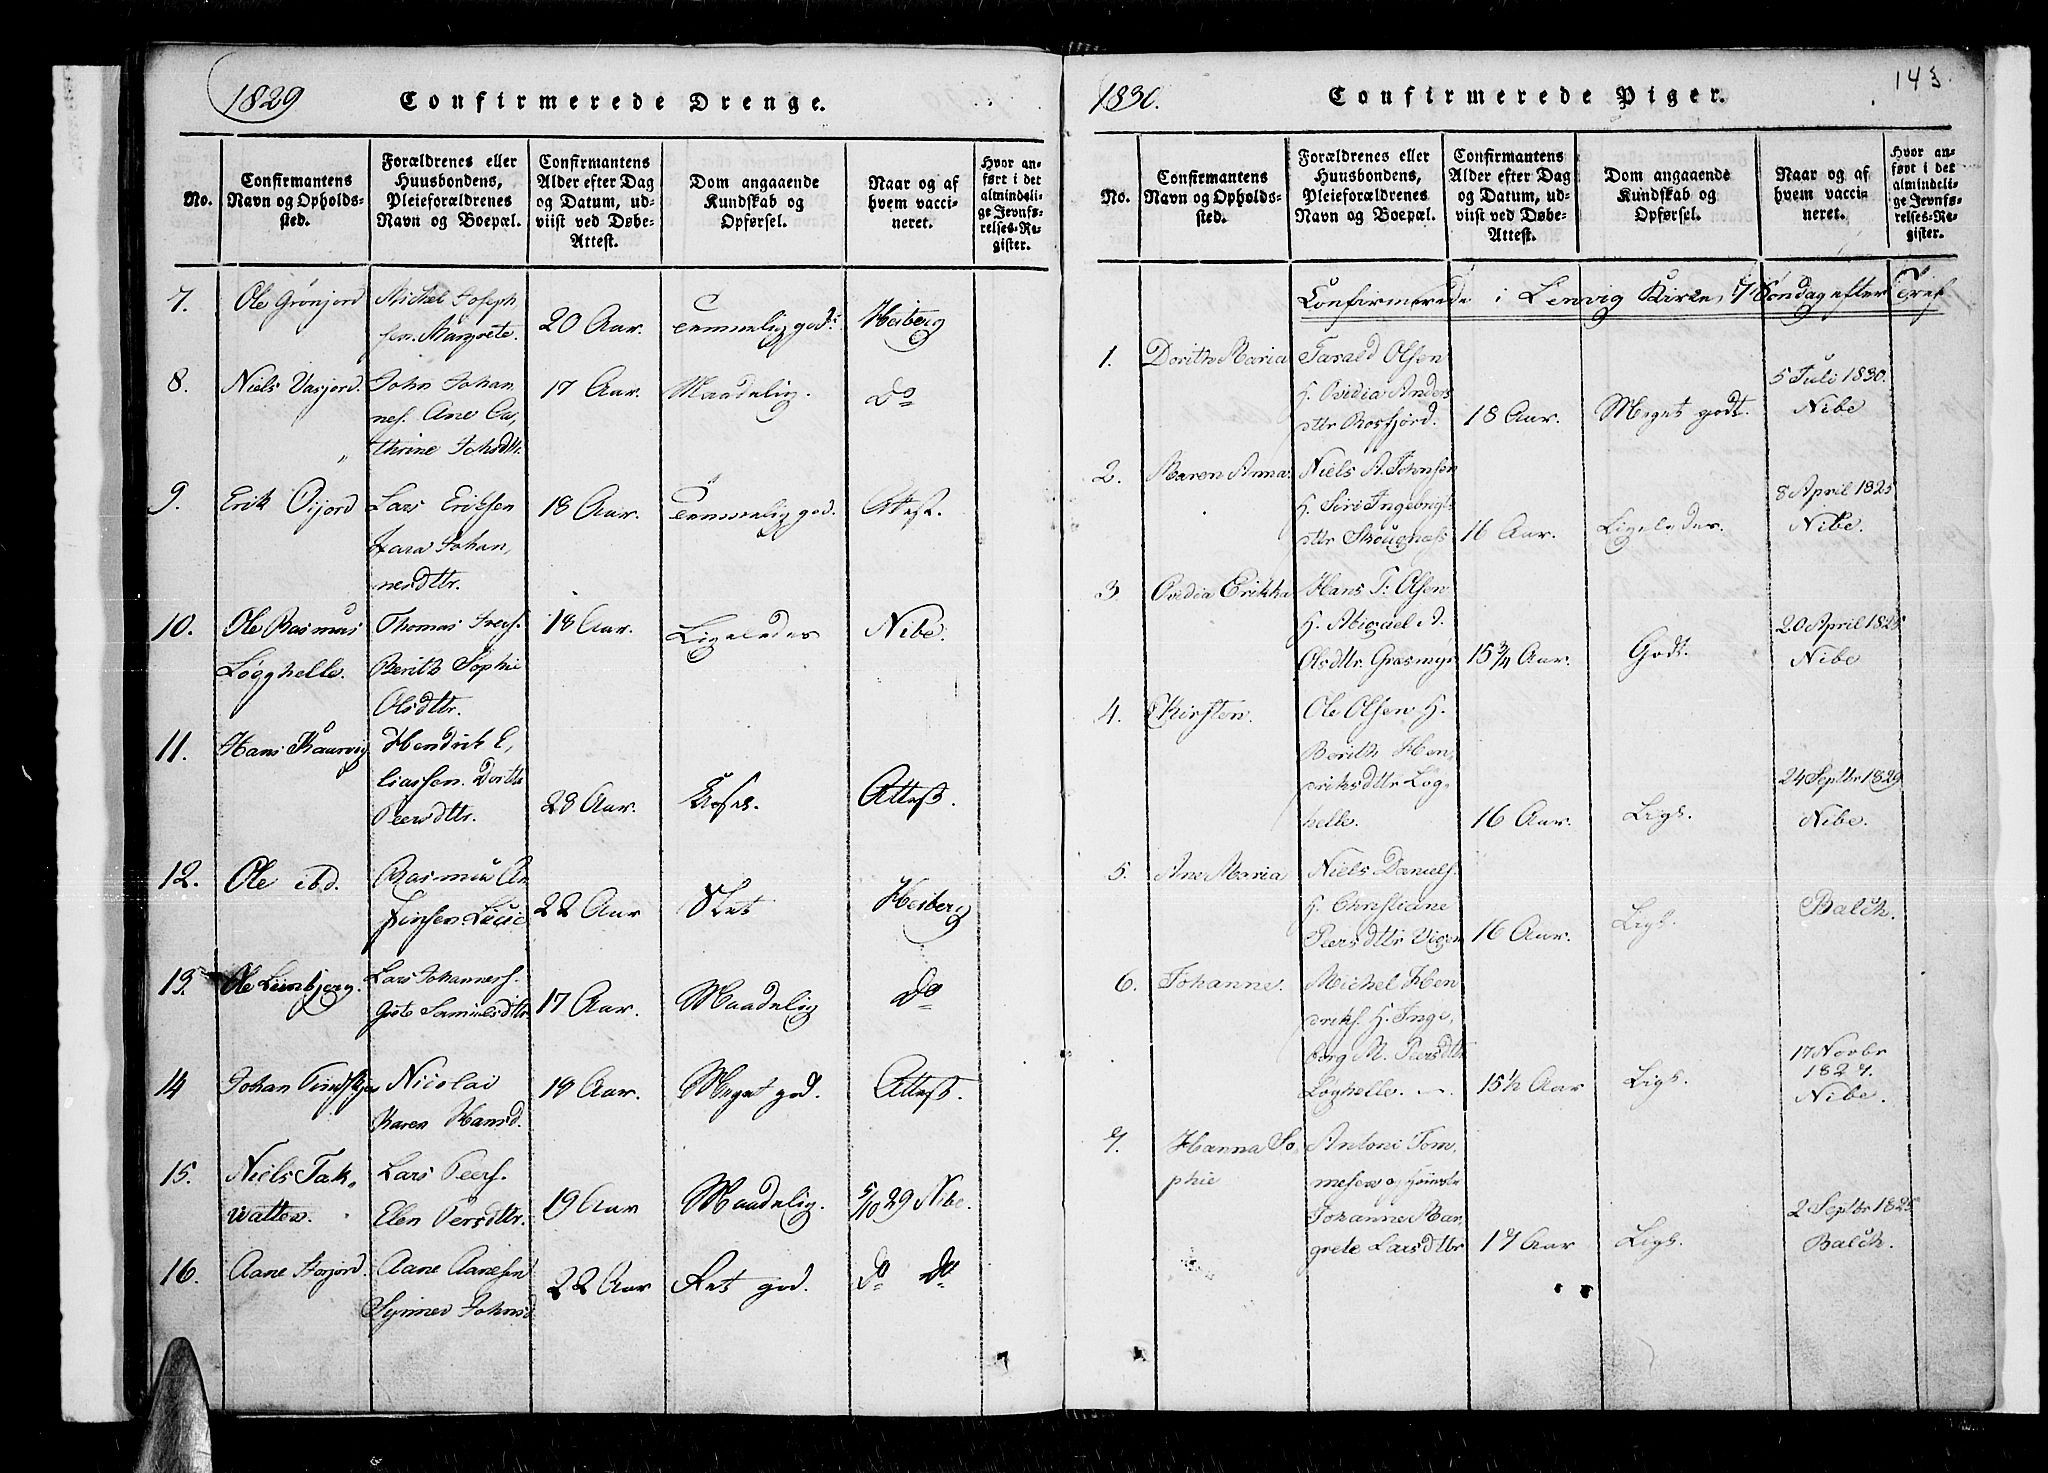 1829
Confirmerede Drenge.
No.
Confirmantens
Navn og Opholds-
sted.
Forældrenes eller
Huusbondens,
Pleieforældrenes
Navn og Boepæl.
Confirmantens
Alder efter Dag
og Datum, ud-
viist ved Døbe-
Attest.
Dom angaaende
Kundskab og
Opførsel.
Naar og af
hvem vacci-
neret.
Hvor an-
ført i det
almindeli-
ge Jevnfø-
relses-Re-
gister.
7.
Ole Grønjord
Michel Joseph
sen. Margrete.
20 Aar.
Temmelig god.
Heiberg
8.
Niels Vasjord.
John Johan
nes. Ane Ca,
thrine Johsdtr.
17 Aar.
Maadelig.
Do
9.
Erik Oijord
Lars Eriksen
Johan,
nesdttr.
18 Aar.
Temmelig god.
Attest.
10.
Ole Rasmus
Løgghelle.
Thomas Ivers.
Berith Sophie
Olsdttr.
18 Aar.
Ligeledes
Nibe.
11.
Hans Kaarvig
Hendrik E,
liassen. Dorth
Peersdttr.
23 Aar.
Attest.
12.
Ole ibd.
Rasmus
22 Aar
Slet
Heiberg
13.
Ole Lunbjerg.
Lars Johannes.
Grete Samuelsdttr
17 Aar.
Maadelig
Do
14
Johan
Nicolai
Karen Hansd.
19 Aar.
Meget god.
Attest.
15.
Niels Tak,
watten.
Lars Peers.
Elen Persdttr.
19 Aar
Maadelig.
5/10 29 Nibe.
16.
Aane Storjord.
Aane Aanesen
Synnev Johnsd
22 Aar
Ret god.
Do Do
1830.
Confirmerede Piger.
143.
No.
Confirmantens
Navn og Opholds-
sted.
Forældrenes eller
Huusbondens,
Pleieforældrenes
Navn og Boepæl.
Confirmantens
Alder efter Dag
og Datum, ud-
viist ved Døbe-
Attest.
Dom angaaende
Kundskab og
Opførsel.
Naar og af
hvem vacci-
neret.
Hvor an-
ført i det
almindeli-
ge Jevnfø-
relses-Re-
gister.
Confirmerede i Lenvig Kirke, 7 Søndag efter Tref
1.
Dorith Maria
Tarald Olsen
H. Ovidia Anders
dttr Rosfjord.
18 Aar.
Meget godt.
5 Juli 1830.
Nibe
2.
Maren Anna.
Niels A. Johnsen
H. Siri Ingebrigt
dttr Skougnæs
16 Aar.
Ligeledes.
8 April 1825
Nibe.
3.
Ovidia Erikka
Hans T. Olsen
H. Abigael A.
Olsdttr. Grasmyr
15 3/4 Aar.
Godt.
20 April 1825
Nibe
4.
Kirsten.
Ole Olsen H.
Berith Hen,
driksdttr Løg,
helle.
16 Aar.
Ligs.
24 Septbr 1829
Nibe.
5.
Ane Maria
Niels Daniels.
H. Christiane
Peersdttr Vigen
16 Aar.
Ligs.
Balch.
6.
Johanne.
Michel Hen
driks. H. Inge,
borg M. Peersdttr
Løghelle.
15 1/2 Aar
Ligs.
17 Novbr
1827.
Nibe.
7.
Hanna So
phie
Antoni Tom,
mesen
Johanne Mar,
grete Larsdttr
17 Aar
Ligs.
2 Septbr 1825
Balch.